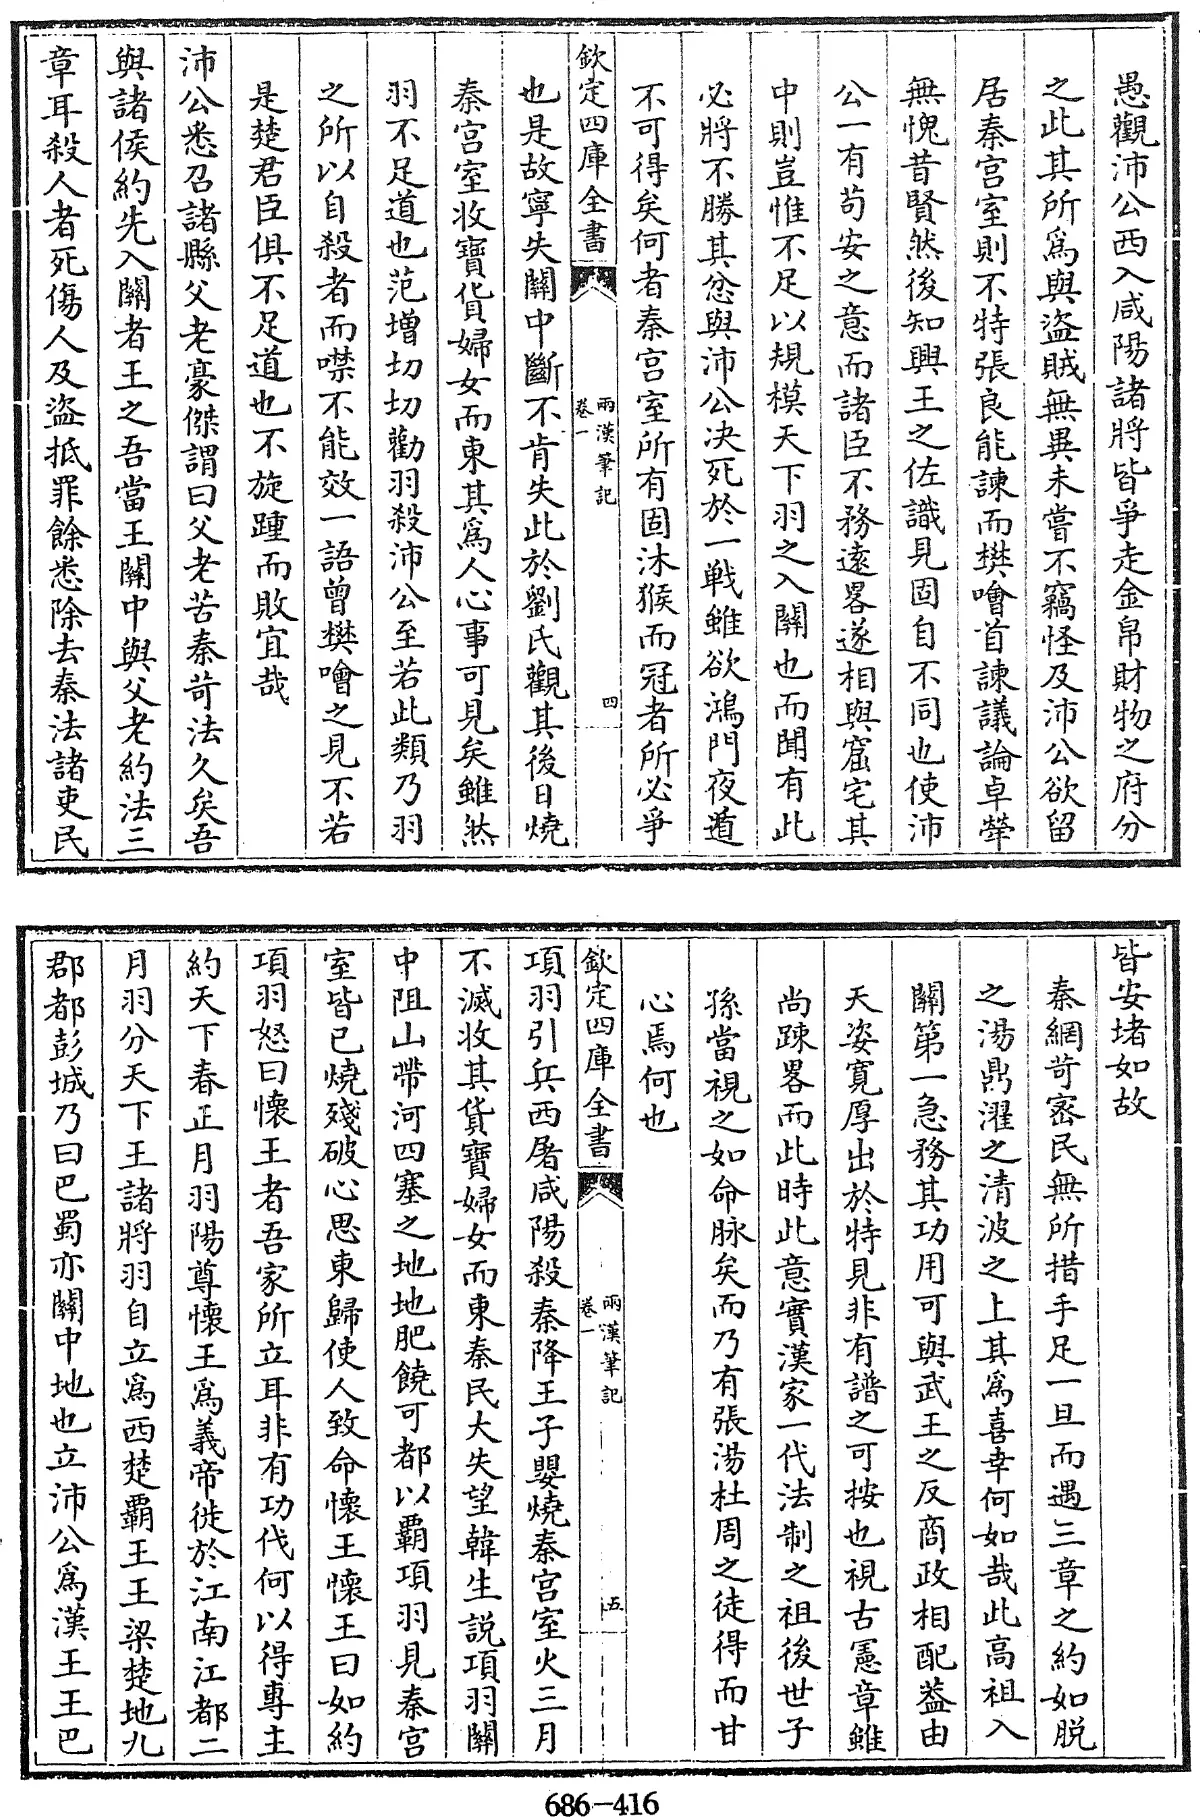 愚觀沛公西入咸陽諸將皆爭走金帛財物之府分
之此其所爲與盜賊無異未嘗不竊怪及沛公欲留
居秦宫室則不特張良能諫而樊噲首諫議論卓犖
無愧昔賢然後知興王之佐識見固自不同也使沛
公一有苟安之意而諸臣不務遠畧遂相與窟宅其
中則豈惟不足以規模天下羽之入關也而聞有此
必將不勝其忿與沛公决死於一戰雖欲鴻門夜遁
不可得矣何者秦宫室所有固沐猴而冠者所必爭
欽定四庫全書
兩漢筆記
卷一
四
也是故寧失關中斷不肯失此於劉氏觀其後日燒
秦宫室收寶貨婦女而東其爲人心事可見矣雖然
羽不足道也范增切切勸羽殺沛公至若此類乃羽
之所以自殺者而噤不能效一語曾樊噲之見不若
是楚君臣俱不足道也不旋踵而敗宜哉
沛公悉召諸縣父老豪傑謂曰父老苦秦苛法久矣吾
與諸侯約先入關者王之吾當王關中與父老約法三
章耳殺人者死傷人及盜抵罪餘悉除去秦法諸吏民
皆安堵如故
秦網苛密民無所措手足一旦而遇三章之約如脱
之湯鼎濯之清波之上其爲喜幸何如哉此高祖入
關第一急務其功用可與武王之反商政相配葢由
天姿寛厚出於特見非有譜之可按也視古憲章雖
尚踈畧而此時此意實漢家一代法制之祖後世子
孫當視之如命脉矣而乃有張湯杜周之徒得而甘
心焉何也
欽定四庫全書
兩漢筆記
卷一
五
項羽引兵西屠咸陽殺秦降王子嬰燒秦宫室火三月
不滅收其貨寶婦女而東秦民大失望韓生説項羽關
中阻山帶河四塞之地地肥饒可都以霸項羽見秦宫
室皆已燒殘破心思東歸使人致命懷王懷王曰如約
項羽怒曰懷王者吾家所立耳非有功伐何以得專主
約天下春正月羽陽尊懷王爲義帝徙於江南江都二
月羽分天下王諸將羽自立爲西楚霸王王梁楚地九
郡都彭城乃曰巴蜀亦關中地也立沛公爲漢王王巴
686-416